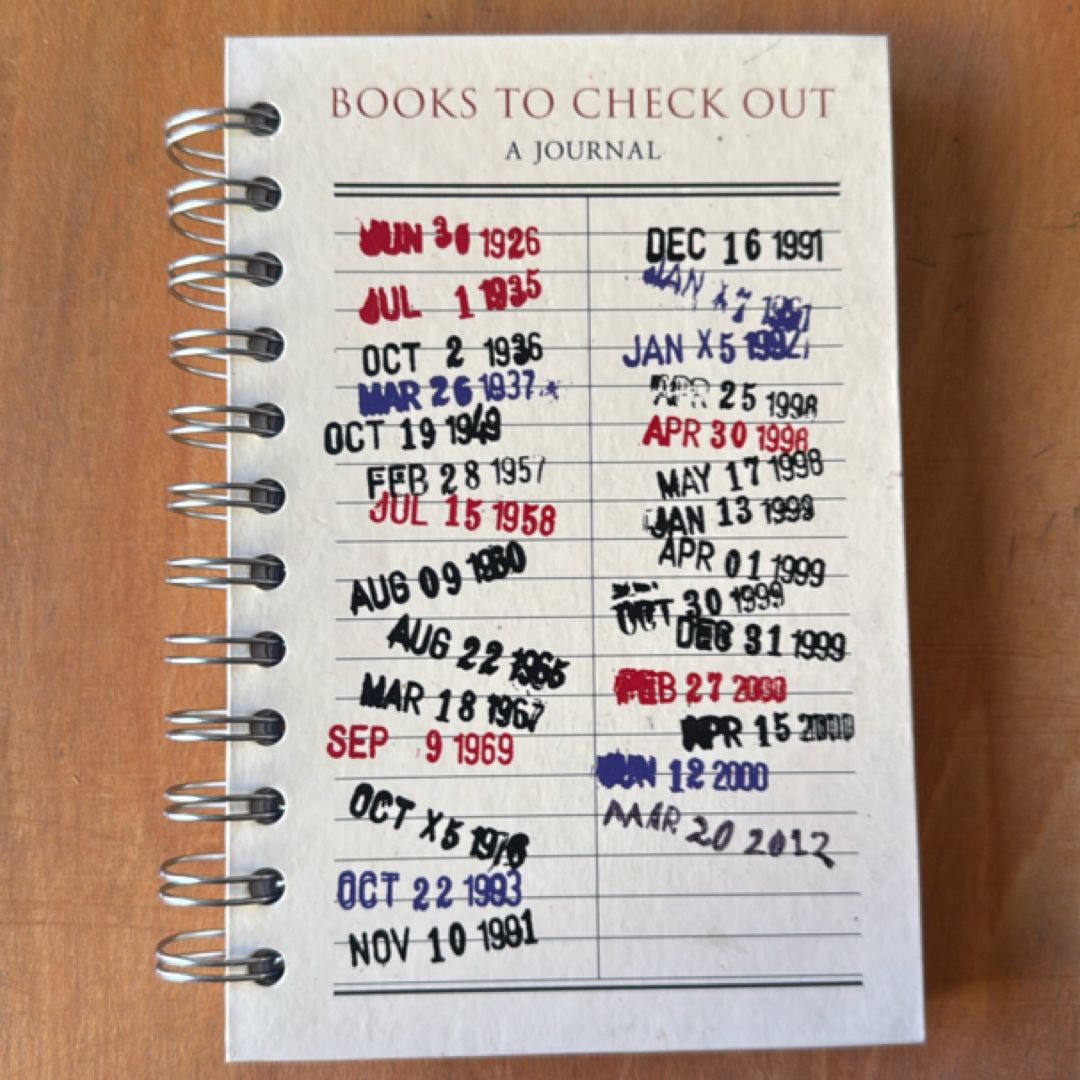 BOOKS TO CHECK OUT
A JOURNAL
JUN 30 1926
JUL 1 1935
OCT 2 1936
MAR 26 1937
OCT 19 1949
FEB 28 1957
JUL 15 1958
AUG 09
AUG 22 1965
MAR 18 1967
SEP 9 1969
OCT X5 1976
OCT 22
NOV 10 1991
DEC 16 1991
JAN
JAN X5 1992
APR 25 1998
APR 30 1998
MAY 17 1998
JAN 13 1999
APR 01 1999
OCT 30 1999
DEC 31 1999
FEB 27 2000
APR 15 2000
JUN 12 2000
MAR 20 2012